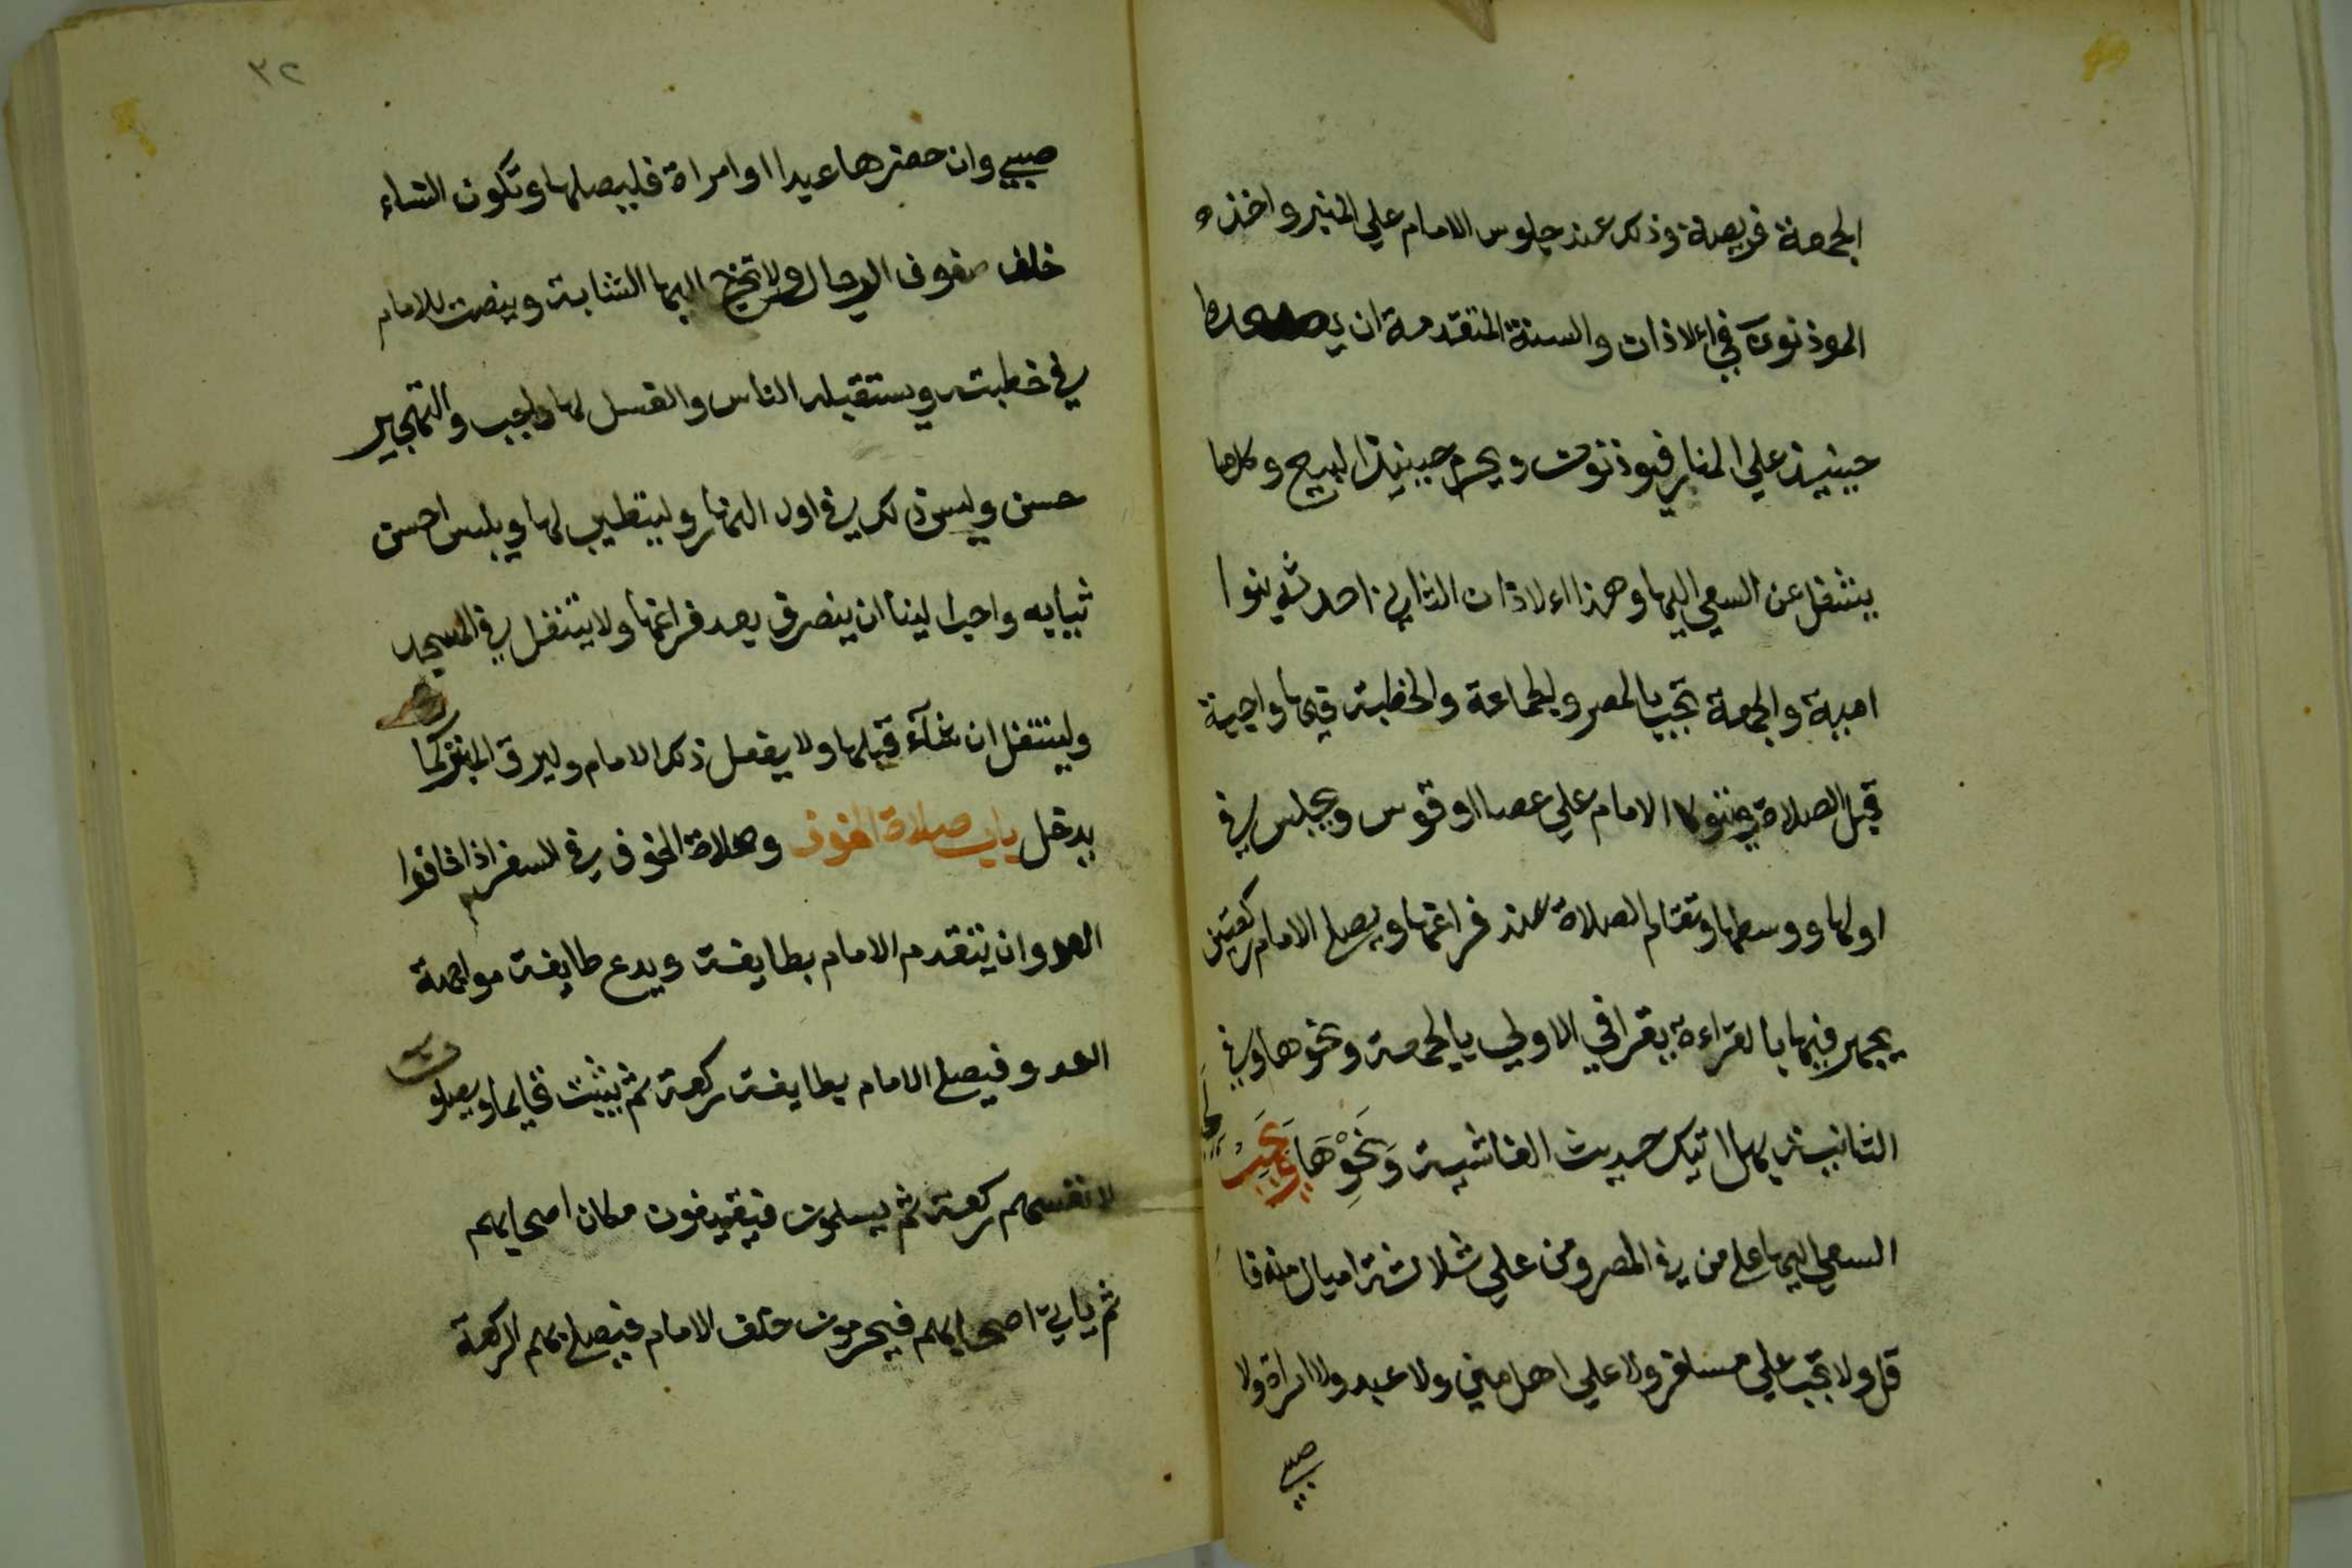 الجمعة فريضة وذلك عند جلوس الامام علي المنبر واخذه
الموذنون في الاذان والسنة المتقدمة ان يصعدوا
حينيذ علي المنار فيوذنون ويحرم حينيذ البيع وكلما
يشغل عن السعي اليها وهذا الاذان الثاني احدثه بنوا
امية والجمعة تجب بالمصر والجماعة والخطبة فيها واجبة
قبل الصلاة ويتوكا الامام علي عصا او قوس ويجلس في
اولها ووسطها وتقام الصلاة عند فراغها ويصلي الامام ركعتين
يجهر فيهما بالقراءة يقرا في الاولي بالجمعة ونحوها وفي
الثانية بهل اتيك حديث الغاشية وَنَحْوِهَا وَيَجِبُ
السعي اليها علي من في المصر ومن علي ثلاثة اميال منه فا
قل ولا تجب علي مسافر ولا علي اهل مني ولا عبد ولا امراة ولا
صبي
٣٢
صبي وان حضرها عبد او امراة فليصلها وتكون النساء
خلف صفوف الرجال ولا تخرج اليها الشابة وينصت للامام
في خطبته ويستقبله الناس والغسل لها واجب والتهجير
حسن وليس ذلك في اول النهار وليتطيب لها ويلبس احسن
ثيابه واحب الينا ان ينصرف بعد فراغها ولا يتنفل في المسجد
وليتنفل ان شآء قبلها ولا يفعل ذلك الامام وليرق المنبر كما
يدخل باب صلاة الخوف وصلاة الخوف في السفر اذا خافوا
العدو ان يتقدم الامام بطايفة ويدع طايفة مواجهة
العدو فيصلي الامام بطايفة ركعة ثم يثبت قايما ويصلون
لانفسهم ركعة ثم يسلمون فيقفون مكان اصحابهم
ثم ياتي اصحابهم فيحرمون خلف الامام فيصلي بهم الركعة